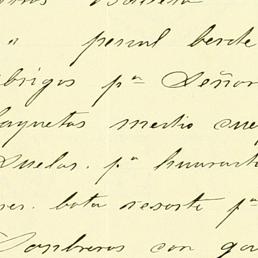 " percal berde
abrigos pª Señor
Jaquetas medio cue
Suelas. pª huarach
res. bota resorte pª
Sombreros con ga